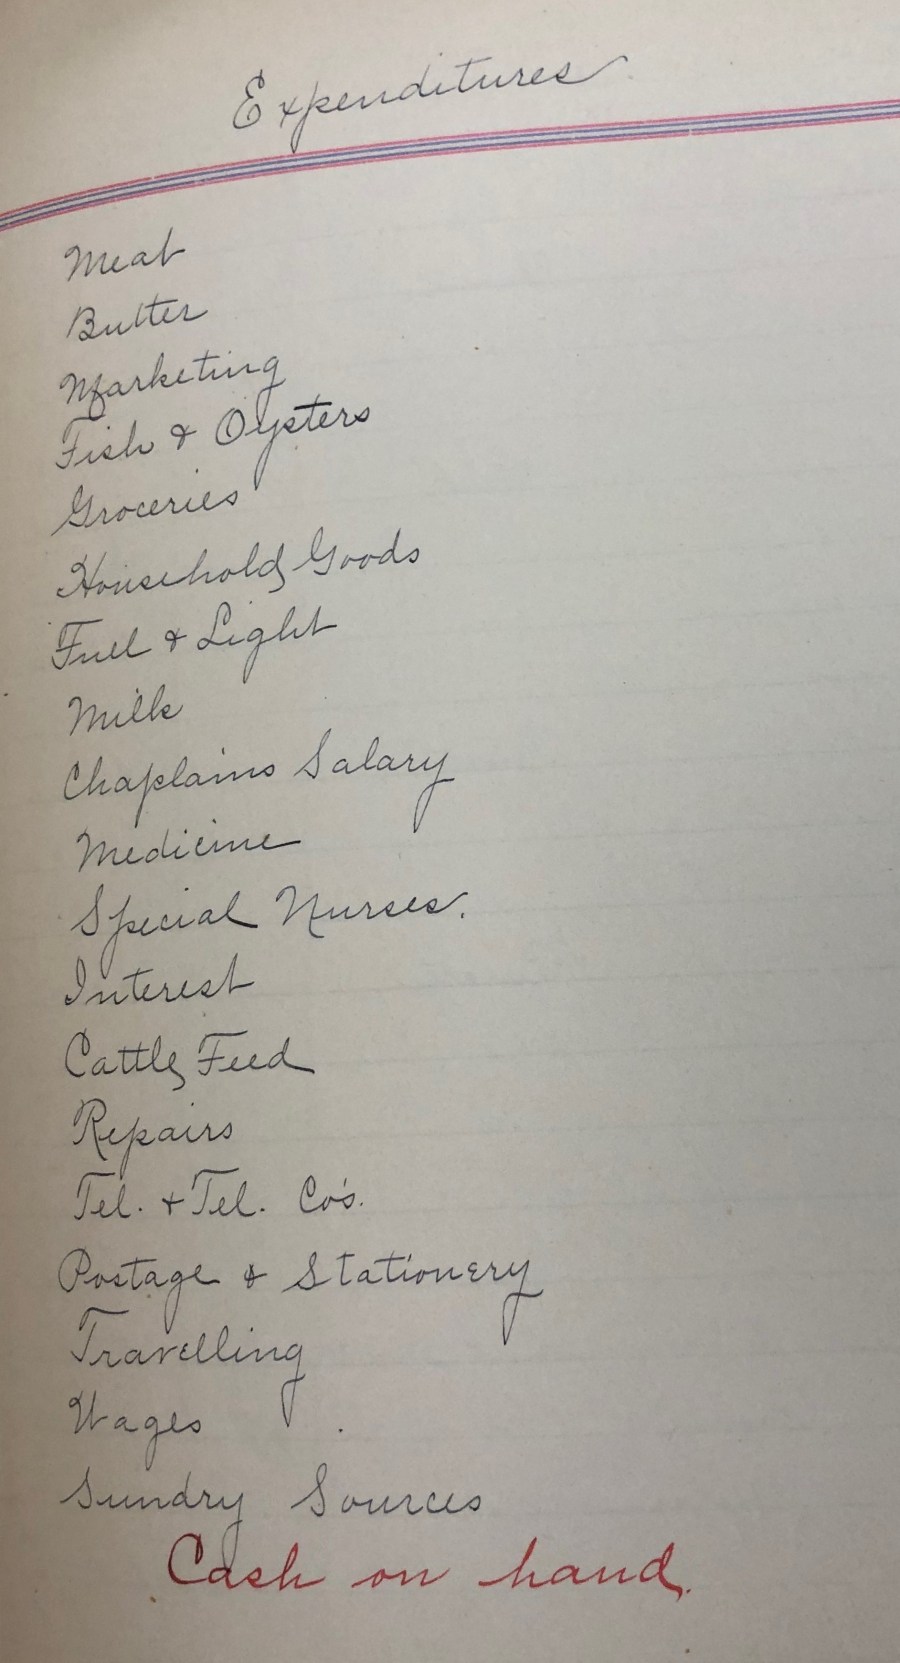 Expenditures
Meat
Butter
Marketing
Fish & Oysters
Groceries
Household Goods
Fuel & Light
Milk
Chaplains Salary
Medicine
Special Nurses.
Interest
Cattle Feed
Repairs
Tel. + Tel. Co's.
Postage & Stationery
Travelling
Wages
Sundry Sources
Cash on hand.